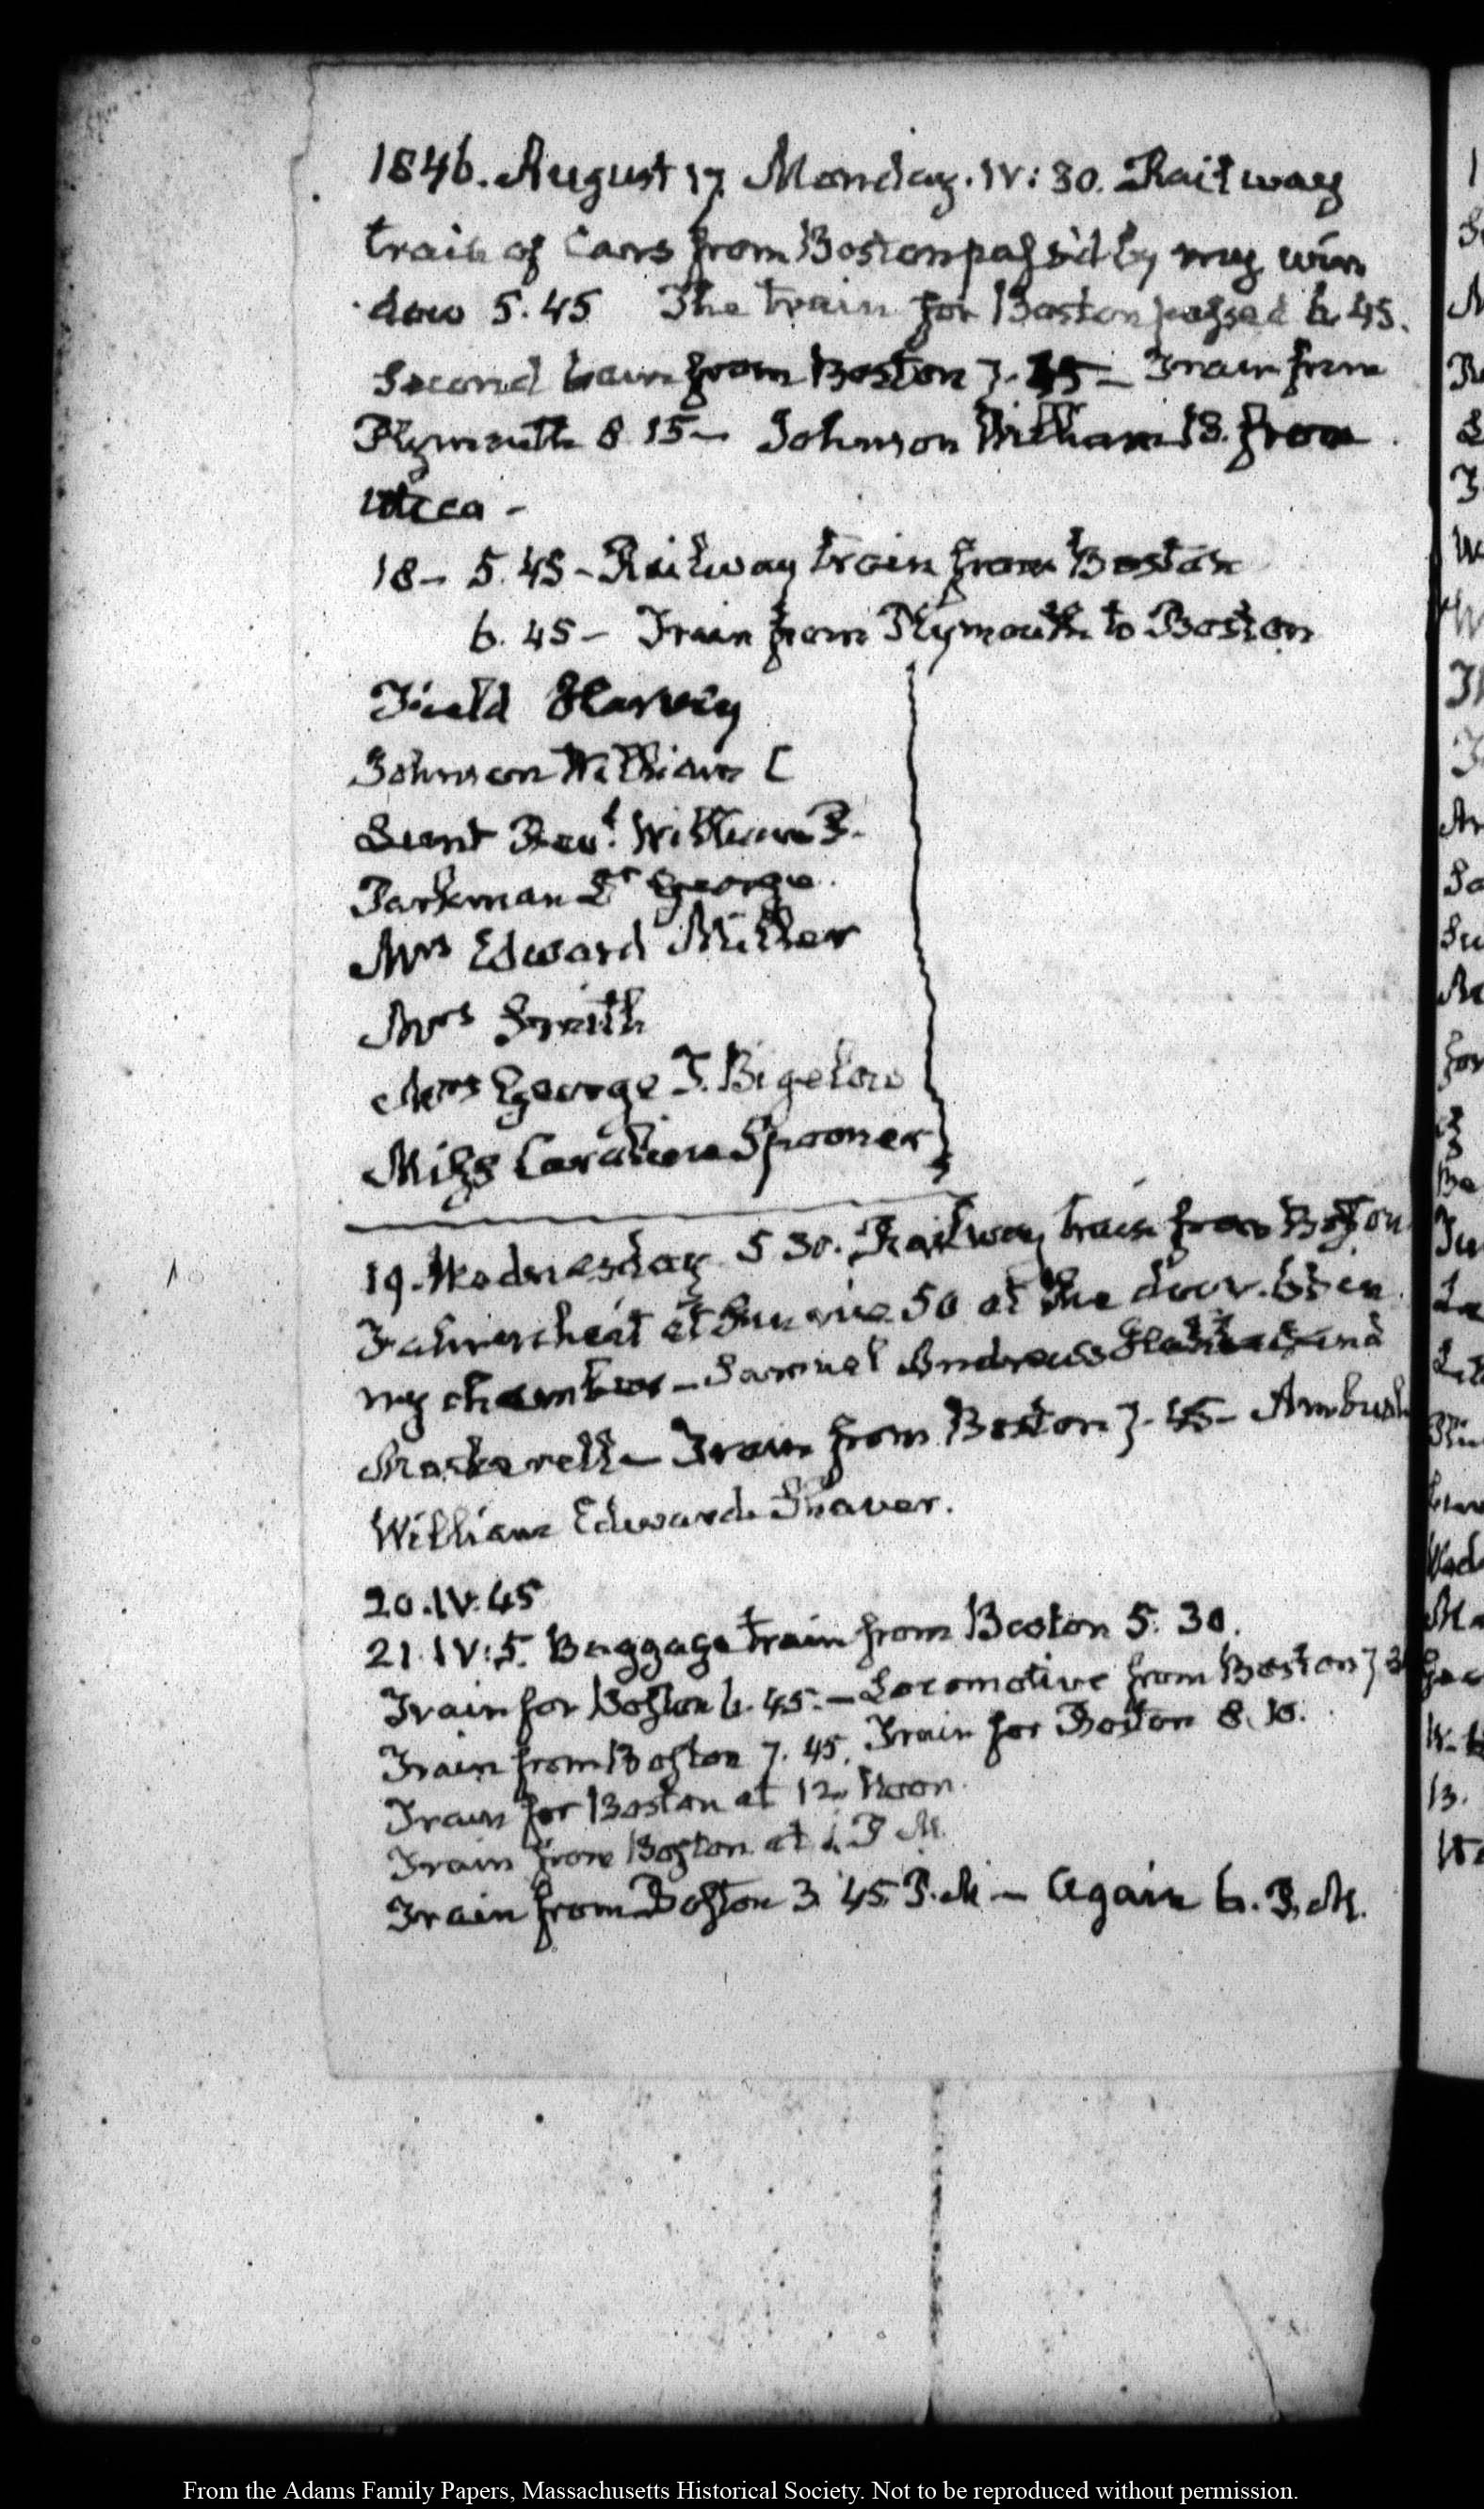 1846. August 17. Monday. IV: 30. Railway
train of Cars from Boston pass'd by my win
dow 5. 45 The train for Boston passed 6. 45.
Second train from Boston 7. 45 — Train from
Plymouth 8 15 — Johnson William 18. from
Utica —
18 — 5. 45 — Railway train from Boston
6. 45 — Train from Plymouth to Boston
Field Harvey
Johnson William C
Lunt Revd. William P.
Parkman Dr George.
Mrs Edward Miller
Mrs Smith
Mrs George T. Bigelow
Miss Caroline Spooner
19. Wednesday 5 30. Railway train from Boston
Fahrenheit at Sun rise 50 at the door. 68 in
my chamber — Samuel Andrews and
Train from Boston 7. 45 — Ambush
William Edward Thayer.
20. IV. 45
21. IV: 5. Baggage train from Boston 5. 30.
Train for Boston 6. 45. — Locomotive from Boston 7
Train from Boston 7. 45. Train for Boston 8.
Train for Boston at 12. Noon.
Train from Boston at 1. P M.
Train from Boston 3 45 P. M — Again 6. P. M.
From the Adams Family Papers, Massachusetts Historical Society. Not to be reproduced without permission.